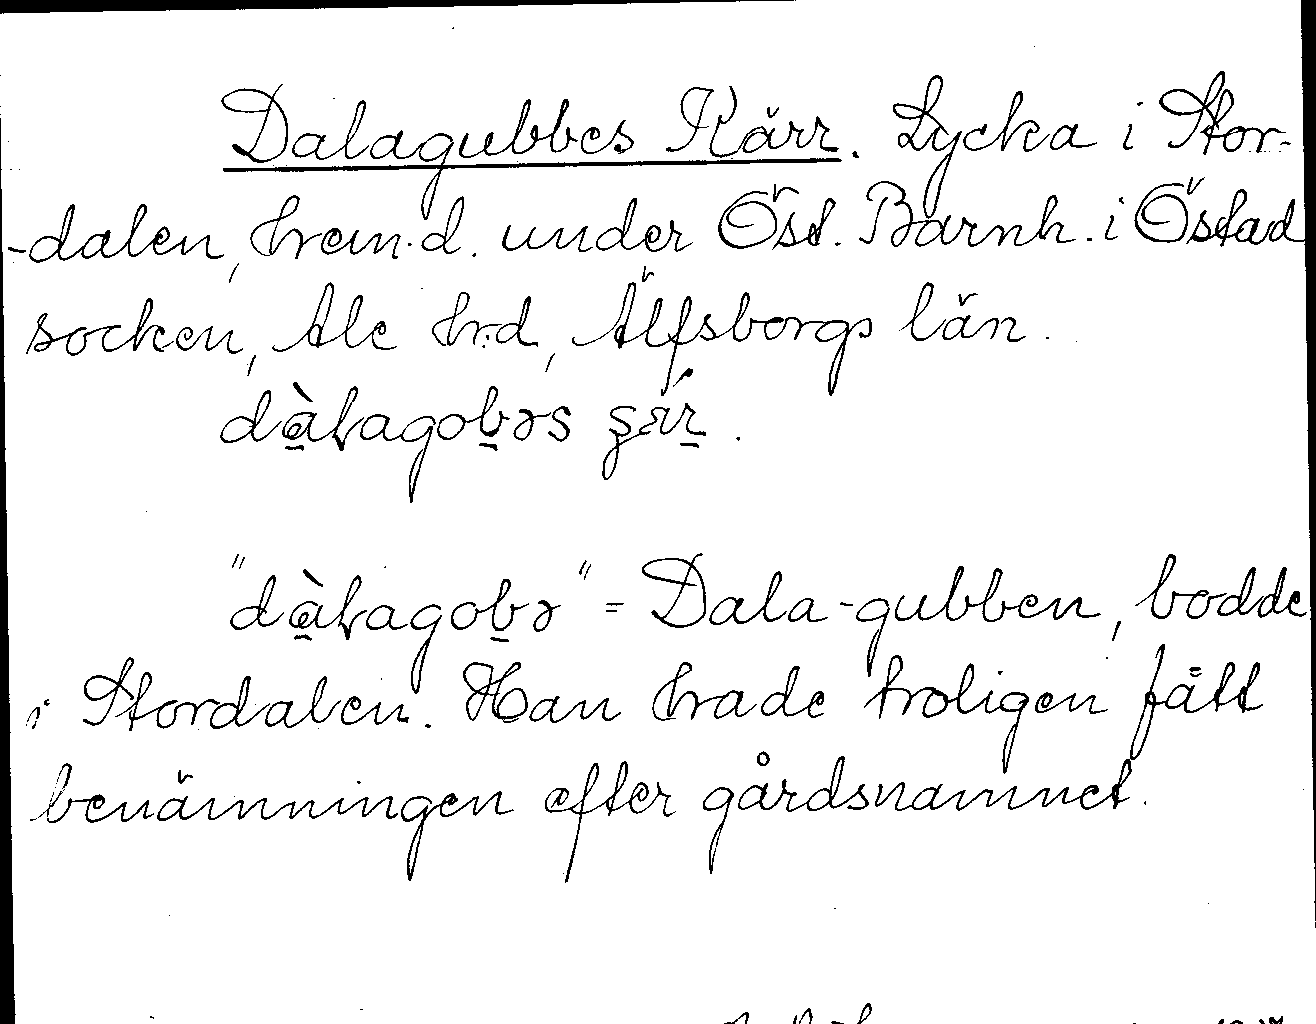 Dalagubbes Kärr. Lycka i Stor-
-dalen, hem.d. under Öst. Barnh. i Östad
socken, Ale h:d, Älfsborgs län.
"
" = Dala-gubben, bodde
i Stordalen. Han hade troligen fått
benämningen efter gårdsnamnet.